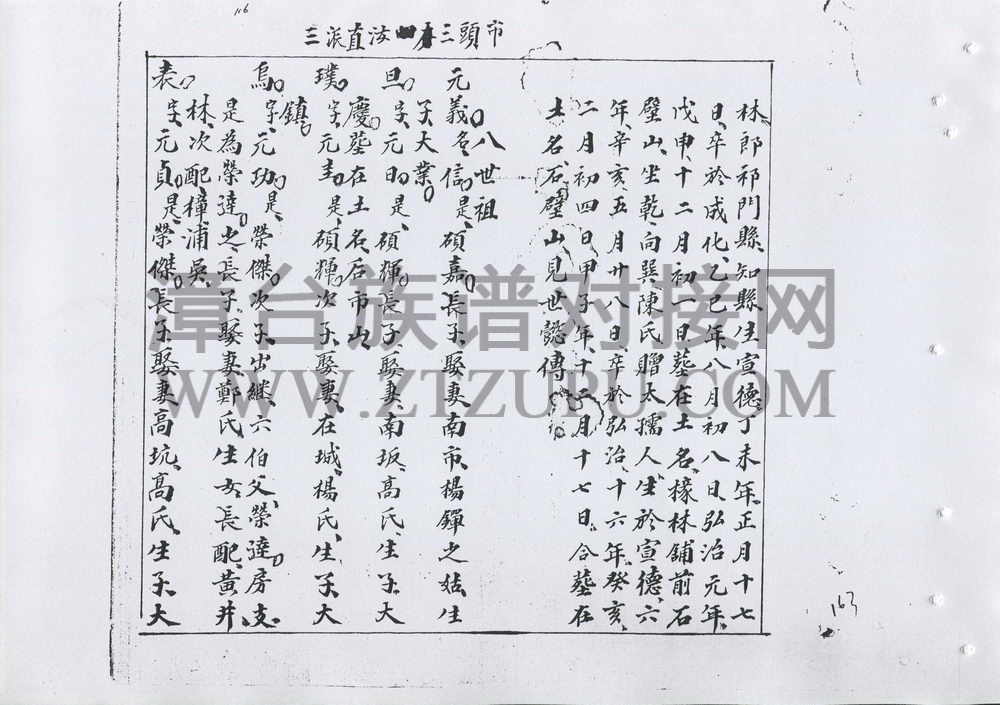 116
市頭三房四汝直派三
林郎祁門縣知縣生宣德丁未年正月十七
日卒於成化乙巳年八月初八日弘治元年
戊申十二月初一日墓在土名椽林鋪前石
壁山坐乾向巽陳氏贈太孺人生於宣德六
年辛亥五月廿八日卒於弘治十六年癸亥
二月初四日甲子年十二月十七日合墓在
土名石壁山見世懿傳
八世祖
元義名信是碩嘉長子娶妻南市楊鐸之姑生
子大業
旦字元日是碩輝長子娶妻南坂高氏生子大
慶墓在土名后市山
璞字元圭是碩輝次子娶妻在城楊氏生子大
鎮
烏字元功是榮傑次子出繼六伯父榮達房支
是為榮達之長子娶妻鄭氏生女長配黃井
林次配樟浦吳
表字元貞是榮傑長子娶妻高坑高氏生子大
163
漳台族谱对接网
WWW.ZTZUPU.COM